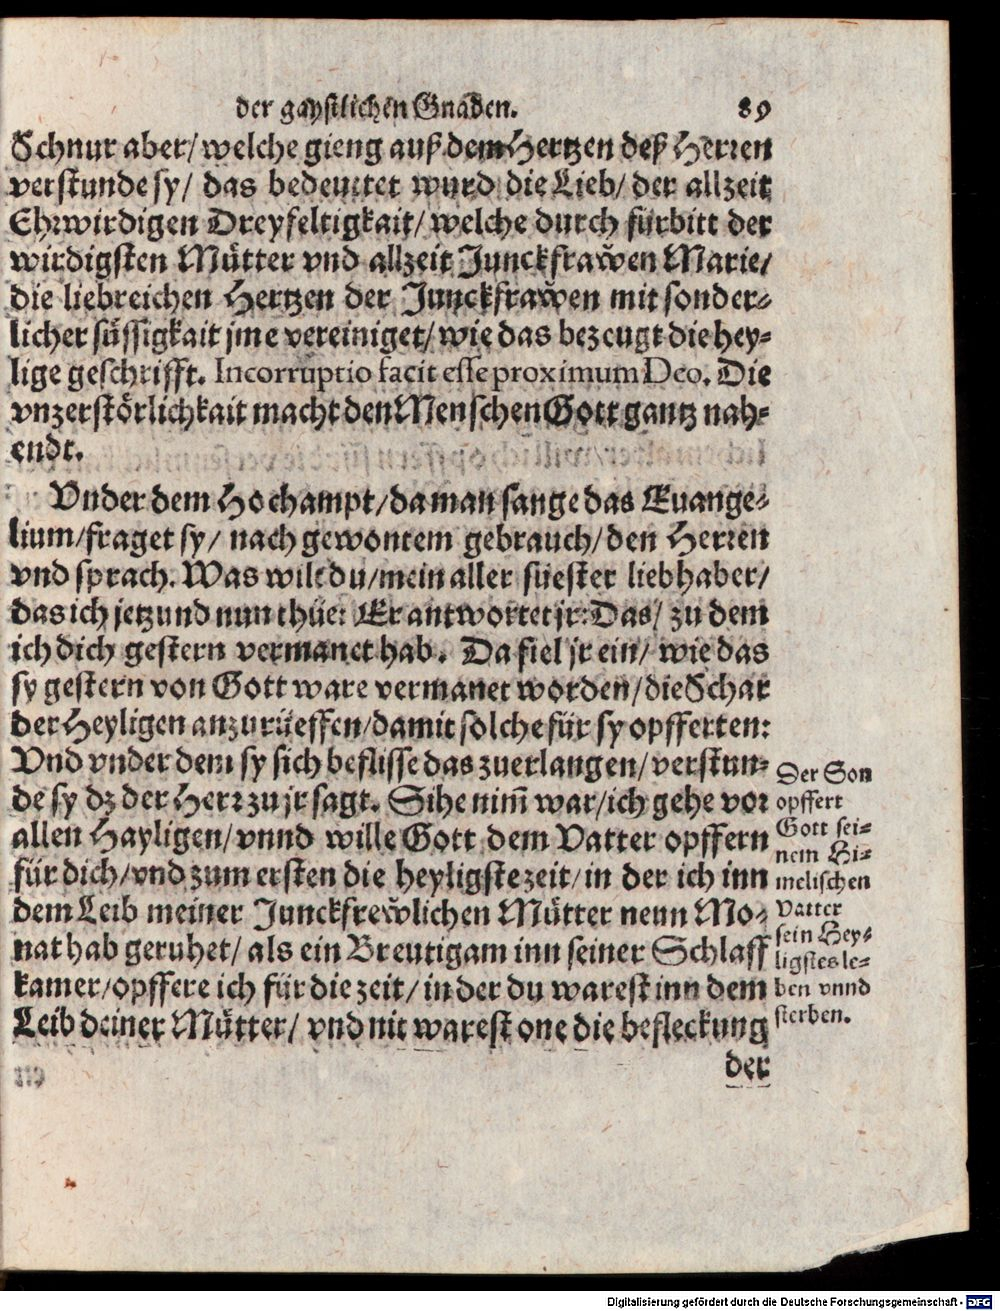 der gaystlichen Gnaden. 89
Schnur aber/ welche gieng auß dem Hertzen deß Herren
verstunde sy/ das bedeutet wurd die Lieb/ der allzeit
Ehrwirdigen Dreyfeltigkait/ welche durch fürbitt der
wirdigsten Mütter vnd allzeit Junckfraw̆en Marie/
die liebreichen Hertzen der Junckfraw̆en mit sonder-
licher süssigkait jme vereiniget/ wie das bezeugt die hey-
lige geschrifft. Incorruptio facit esse proximum Deo. Die
vnzerstörlichkait macht den Menschen Gott gantz nah-
endt.
Vnder dem Hochampt/ da man sange das Euange-
lium/ fraget sy/ nach gewontem gebrauch/ den Herren
vnd sprach. Was wilt du/ mein aller süester liebhaber/
das ich jetzund nun thüe: Er antwortet jr: Das/ zu dem
ich dich gestern vermanet hab. Da fiel jr ein/ wie das
sy gestern von Gott ware vermanet worden/ die Schar
der Heyligen anzurüeffen/ damit solche für sy opfferten:
Vnd vnder dem sy sich beflisse das zuerlangen/ verstun-
de sy dz der Herr zu jr sagt. Sihe nim̄ war/ ich gehe vor
allen Hayligen/ vnnd wille Gott dem Vatter opffern
für dich/ vnd zum ersten die heyligste zeit/ in der ich inn
dem Leib meiner Junckfrew̆lichen Mütter neun Mo-
nat hab geruhet/ als ein Breutigam inn seiner Schlaff
kamer/ opffere ich für die zeit/ in der du warest inn dem
Leib deiner Mütter/ vnd nit warest one die befleckung
der
Der Son
opffert
Gott sei-
nem Hi-
melischen
Vatter
sein Hey-
ligstes le-
ben vnnd
sterben.
Digitalisierung gefördert durch die Deutsche Forschungsgemeinschaft - DFG